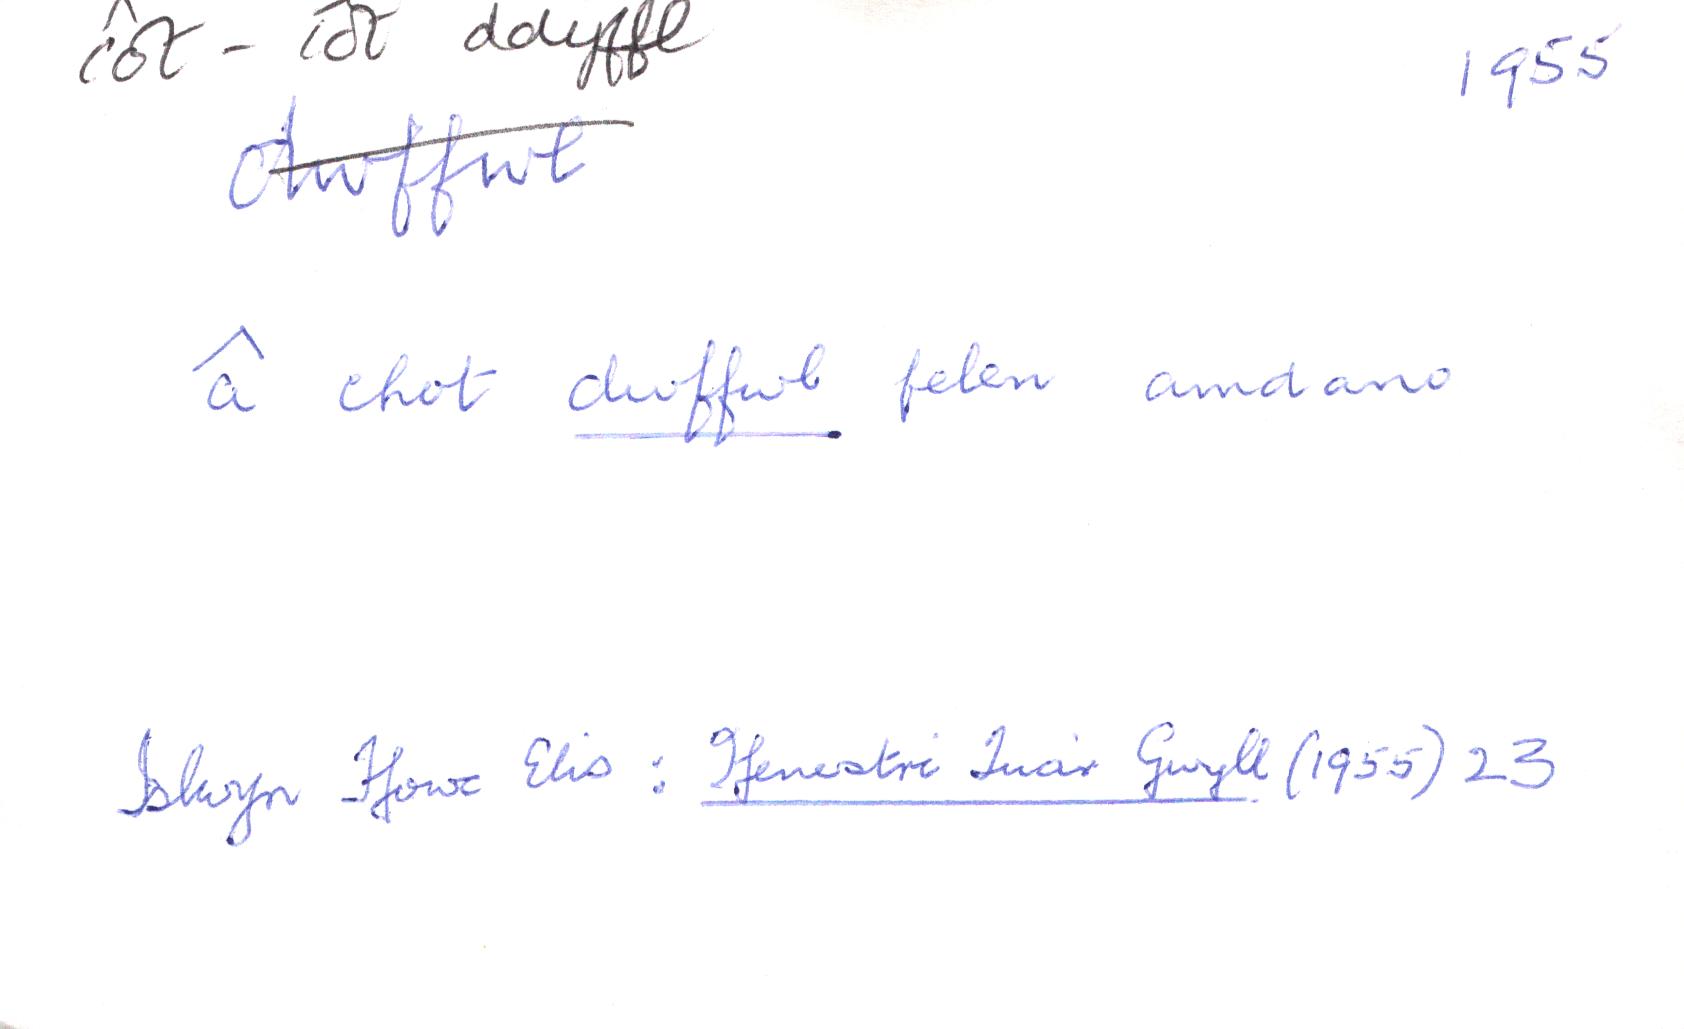 côt - côt ddyffl
1955
dwffwl
â chot dwffwl felen amdano
Islwyn Ffowc Elis : Ffenestri Tua'r Gwyll (1955) 23